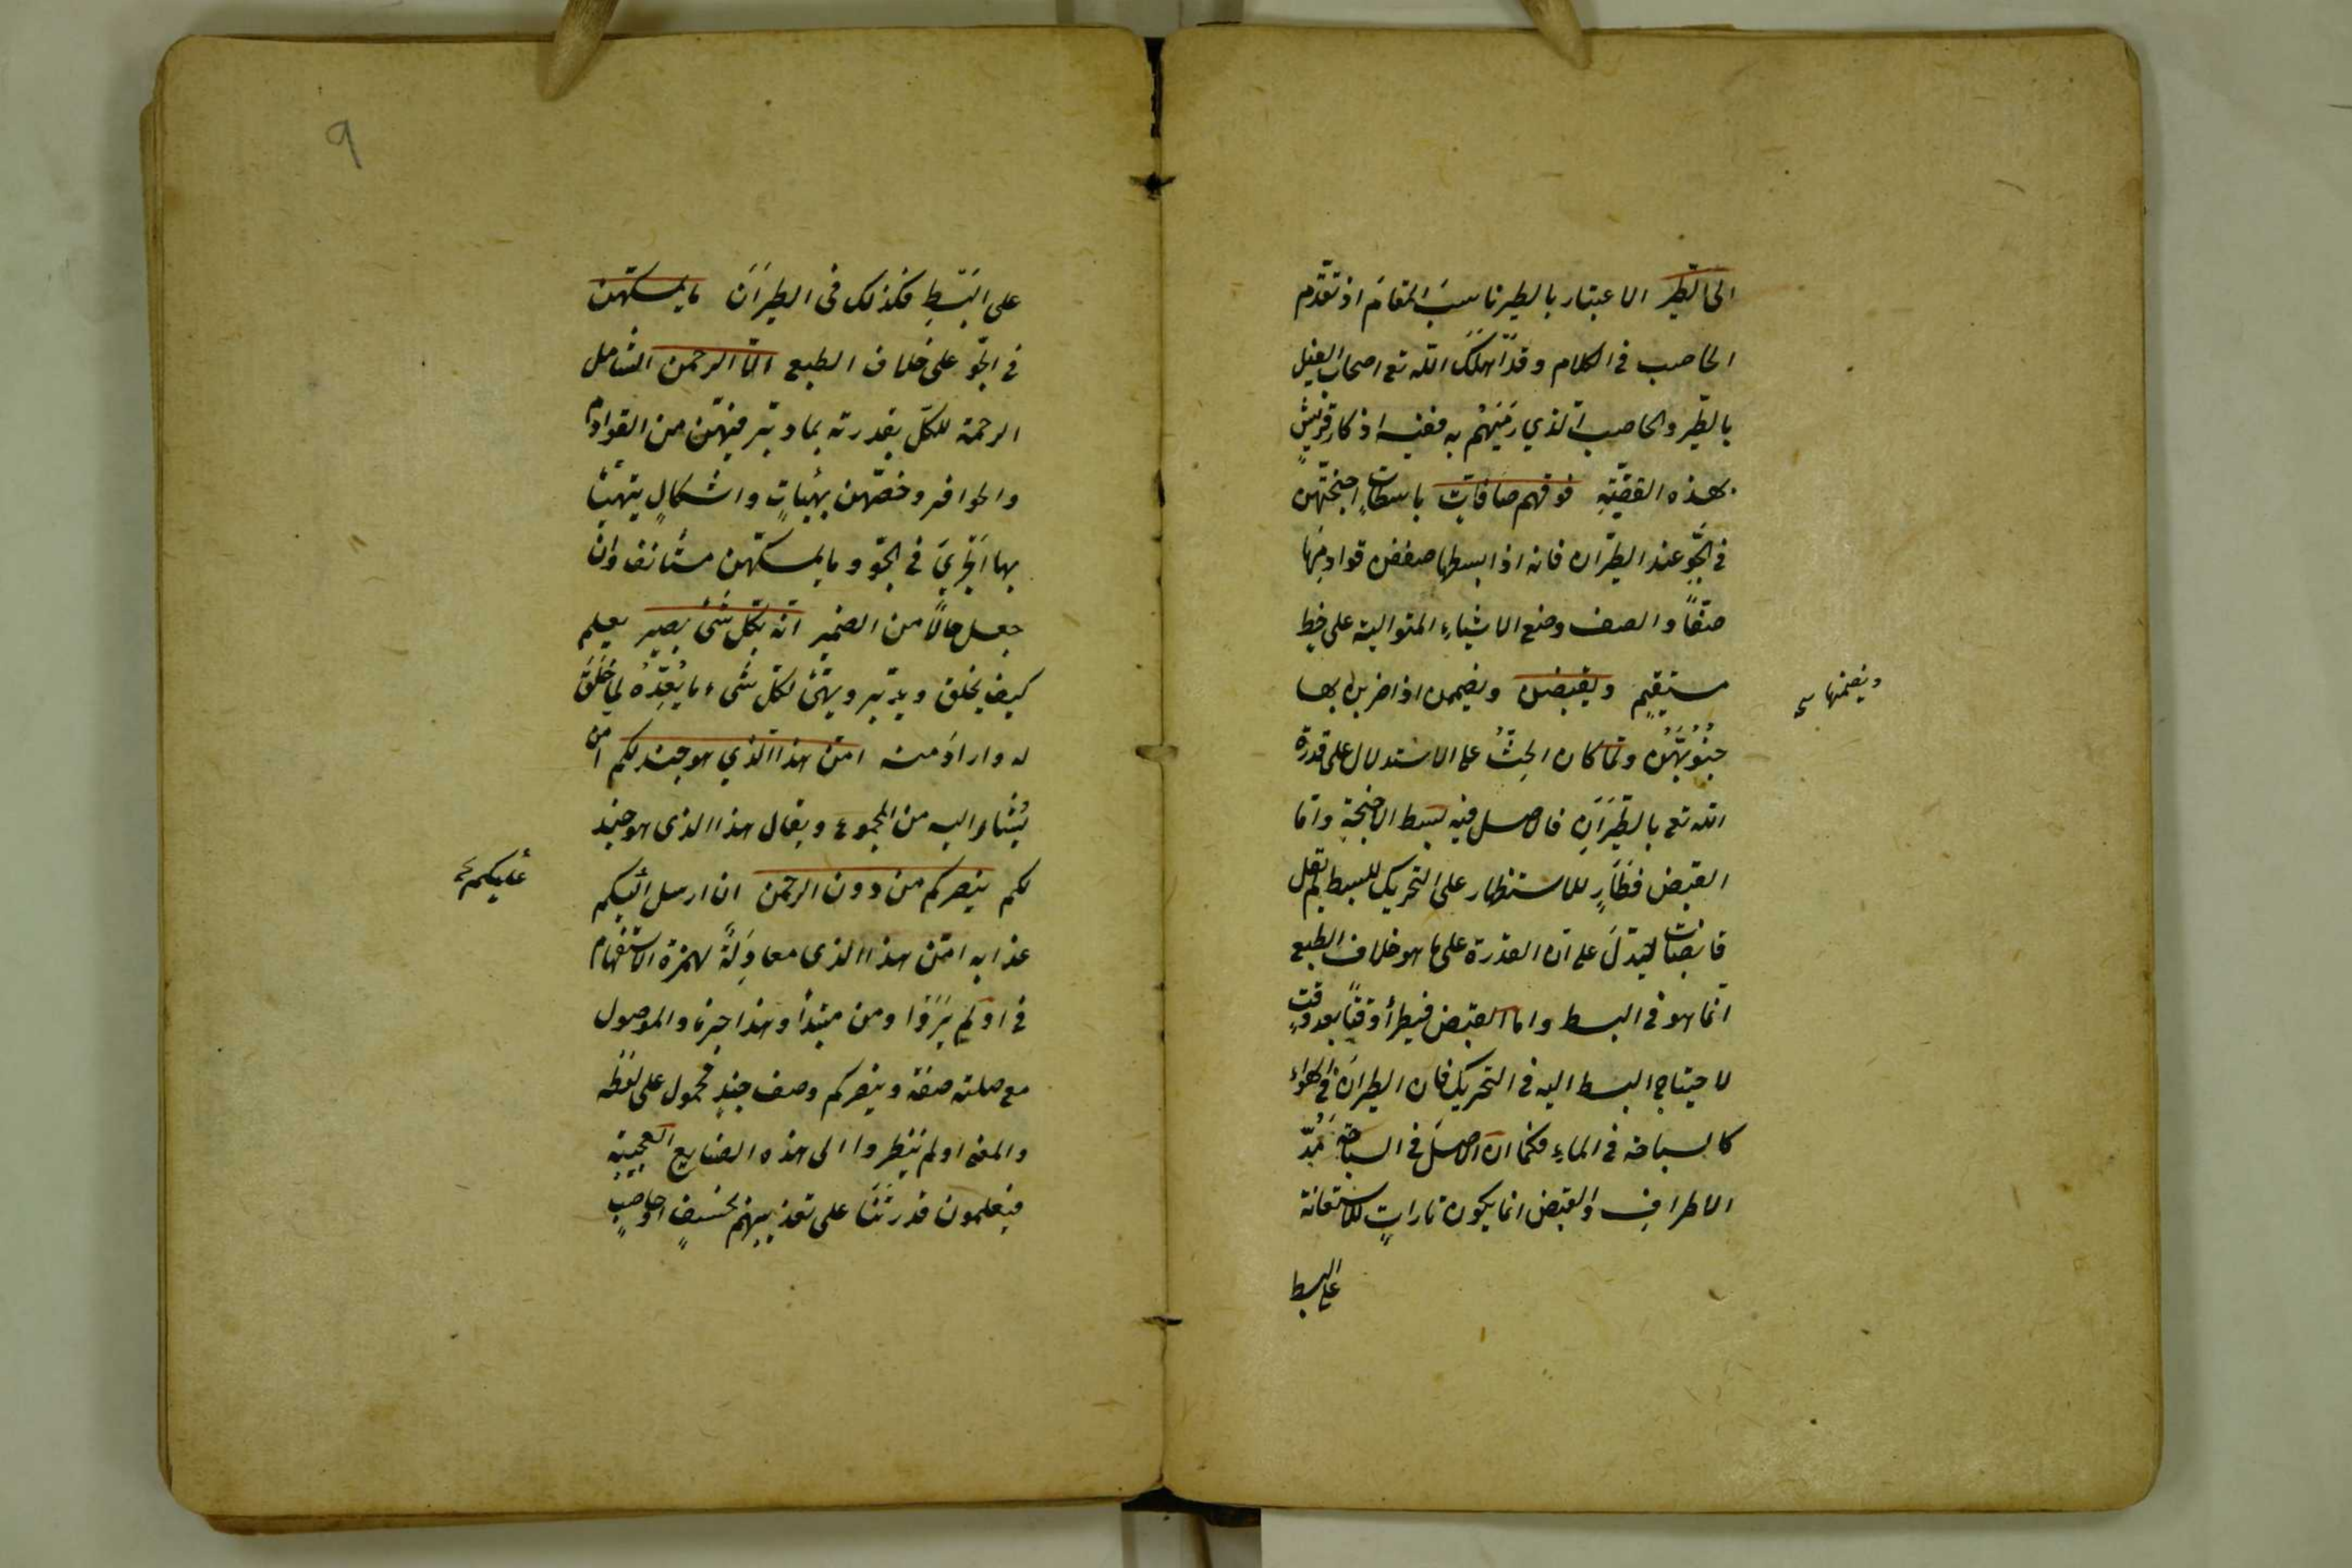 الى الطّير الاعتبار بالطير ناسبَ المقامَ اذ تقدّم
الحاصب فى الكلام وقد اهلَكَ الله تع اصحاب الفيل
بالطّير والحاصب الّذي رَمَيَهُم به ففيه اذكار قريشٍ
بهذه القصّة فوقهم صافّاتٍ باسطاتٍ اجنحتهنّ
فى الجوِّ عند الطيران فانه اذا بسطها صففن قوادمها
صفّاً والصف وضع الاشياءِ المتوالية على خط
مستقيمٍ ويقبضن ويضممن اذا ضربن بها
ويضمنها
جنُوبَهُنّ ولمّا كان الحثُّ على الاستدلال على قدرة
الله تع بالطَيَرَانِ فالاصل فيه بسط الاجنحةِ وامّا
القبض فطَارٍ للاستظهار على التحريك للبسط لم يقل
قابضات ليدلّ على ان القدرة على ما هو خلاف الطبع
انّما هو فى البسط واما القبض فيطرأ وقتاً بعد وقتٍ
لاحتياج البسط اليه فى التحريك فان الطيرانَ فى الهواء
كالسباحة فى الماءِ فكما ان الاصلَ فى السباحة مَدُّ
الاطرافِ والقبض انما يكون تاراتٍ للاستعانة
على البسط
٩
على البَسْطِ فكذلك فى الطيَرَانَ ما يمسكهنّ
فى الجوِّ على خلاف الطبع الّا الرحمن الشامل
الرحمة للكلّ بقدرته بما دبّر فيهنّ من القوادم
والخوافى وخصّهن بهيئاتٍ واشكالٍ يتهيّأ
بها الجَرْيَ فى الجوّ وما يمسكهن مستأنف وان
جعل حالاً من الضمير انّه بكلّ شئ بصير يعلم
كيف يخلق ويدبّر ويهيّئ لكلّ شىء ما يُعِدّهُ لما خَلَقَ
له واراد منه امّن هذا الّذي هو جند لكم امن
يُشار اليه من المجموع ويقال هذا الذى هو جند
لكم ينصركم من دون الرحمن ان ارسل اليكم
عليكم
عذابه امّن هذا الذى معادِلةٌ لهمزة الاستفهام
فى اولم يَرَوْا ومن مبتدأ وهذا خبره والموصول
مع صلته صفة وينصركم وصف جندٍ محمول على لفظه
والمعنى اولم ينظروا الى هذه الصنايع العجيبة
فيعلمون قدرتَنَا على تعذيبهم بخسفٍ اوحاصبٍ